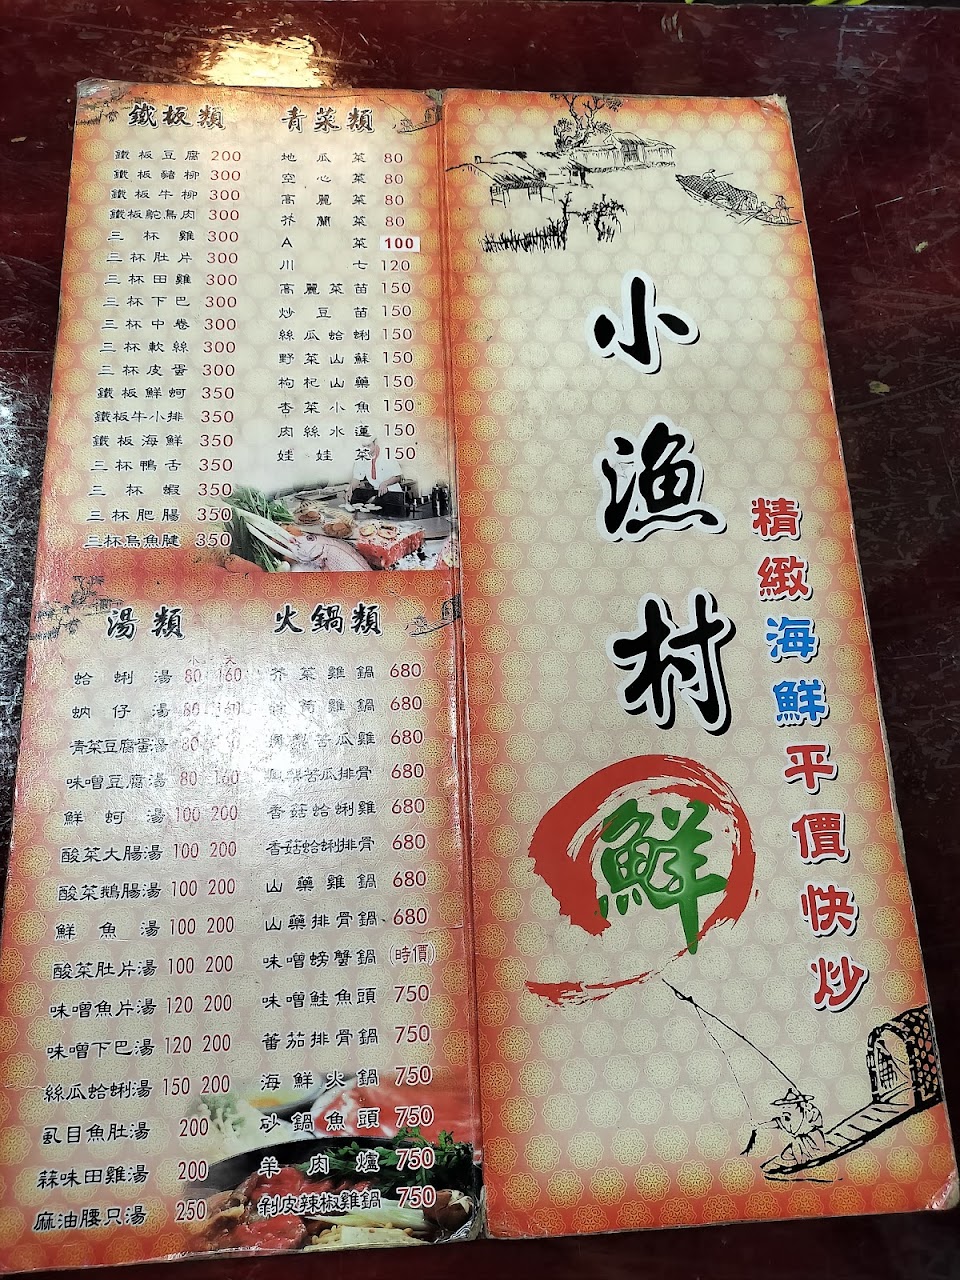 鐵板類
鐵板豆腐 200
鐵板豬柳 300
鐵板牛柳 300
鐵板鴕鳥肉 300
三杯雞 300
三杯肚片 300
三杯田雞 300
三杯下巴 300
三杯中卷 300
三杯軟絲 300
三杯皮蛋 300
鐵板鮮蚵 350
鐵板牛小排 350
鐵板海鮮 350
三杯鴨舌 350
三杯蝦 350
三杯肥腸 350
三杯烏魚腱 350
青菜類
地瓜菜 80
空心菜 80
高麗菜 80
芥蘭菜 80
A菜 100
川七 120
高麗菜苗 150
炒豆苗 150
絲瓜蛤蜊 150
野菜山蘇 150
枸杞山藥 150
杏菜小魚 150
肉絲水蓮 150
娃娃菜 150
湯類
小 大
蛤蜊湯 80 160
蚋仔湯 80 160
青菜豆腐蛋湯 80
味噌豆腐湯 80 160
鮮蚵湯 100 200
酸菜大腸湯 100 200
酸菜鵝腸湯 100 200
鮮魚湯 100 200
酸菜肚片湯 100 200
味噌魚片湯 120 200
味噌下巴湯 120 200
絲瓜蛤蜊湯 150 200
虱目魚肚湯 200
蒜味田雞湯 200
麻油腰只湯 250
火鍋類
芥菜雞鍋 680
雞鍋 680
鳳梨苦瓜雞 680
鳳梨苦瓜排骨 680
香菇蛤蜊雞 680
香菇蛤蜊排骨 680
山藥雞鍋 680
山藥排骨鍋 680
味噌螃蟹鍋 (時價)
味噌鮭魚頭 750
蕃茄排骨鍋 750
海鮮火鍋 750
砂鍋魚頭 750
羊肉爐 750
剝皮辣椒雞鍋 750
小漁村
鮮
精緻海鮮平價快炒